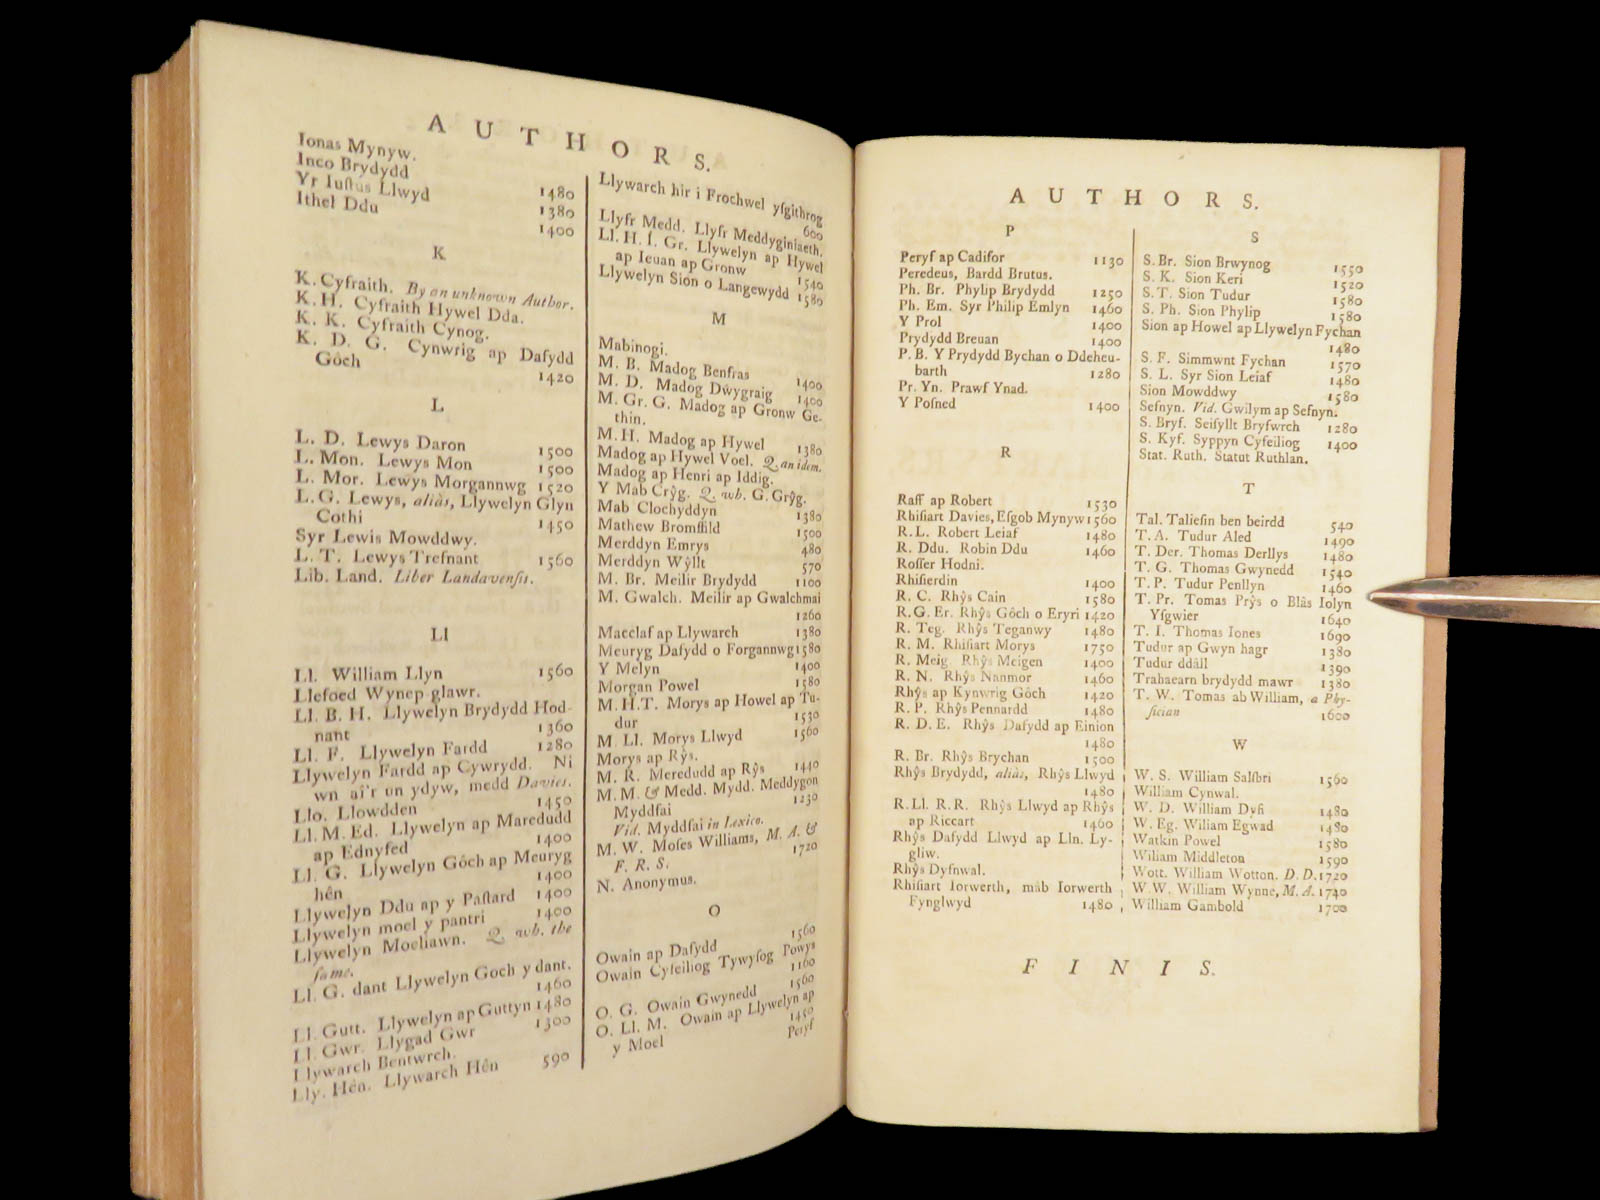 AUTHORS.
Ionas Mynyw.
Inco Brydydd
Yr Iuſtus Llwyd 1480
Ithel Ddu 1380
1400
K
K. Cyfraith. By an unknown Author.
K. H. Cyfraith Hywel Dda.
K. K. Cyfraith Cynog.
K. D. G. Cynwrig ap Dafydd
Gôch 1420
L
L. D. Lewys Daron 1500
L. Mon. Lewys Mon 1500
L. Mor. Lewys Morgannwg 1520
L. G. Lewys, aliàs, Llywelyn Glyn
Cothi 1450
Syr Lewis Mowddwy.
L. T. Lewys Trefnant 1560
Lib. Land. Liber Landavenſis.
Ll
Ll. William Llyn 1560
Llefoed Wynep glawr.
Ll. B. H. Llywelyn Brydydd Hod-
nant 1360
Ll. F. Llywelyn Fardd 1280
Llywelyn Fardd ap Cywrydd. Ni
wn ai'r un ydyw, medd Davies.
Llo. Llowdden 1450
Ll. M. Ed. Llywelyn ap Maredudd
ap Ednyfed 1400
Ll. G. Llywelyn Gôch ap Meuryg
hên 1400
Llywelyn Ddu ap y Paſtard 1400
Llywelyn moel y pantri 1400
Llywelyn Moeliawn. Q. wh. the
ſame.
Ll. G. dant Llywelyn Goch y dant.
1460
Ll. Gutt. Llywelyn ap Guttyn 1480
Ll. Gwr. Llygad Gwr 1300
Llywarch Bentwrch.
Lly. Hên. Llywarch Hên 590
Llywarch hir i Frochwel yſgithrog
600
Llyfr Medd. Llyfr Meddyginiaeth.
Ll. H. I. Gr. Llywelyn ap Hywel
ap Ieuan ap Gronw 1540
Llywelyn Sion o Langewydd 1580
M
Mabinogi.
M. B. Madog Benfras 1400
M. D. Madog Dŵygraig 1400
M. Gr. G. Madog ap Gronw Ge-
thin.
M. H. Madog ap Hywel 1380
Madog ap Hywel Voel. Q. an idem.
Madog ap Henri ap Iddig.
Y Mab Crŷg. Q. wh. G. Grŷg.
Mab Clochyddyn 1380
Mathew Bromffild 1500
Merddyn Emrys 480
Merddyn Wŷllt 570
M. Br. Meilir Brydydd 1100
M. Gwalch. Meilir ap Gwalchmai
1260
Macclaf ap Llywarch 1380
Meuryg Dafydd o Forgannwg 1580
Y Melyn 1400
Morgan Powel 1580
M. H. T. Morys ap Howel ap Tu-
dur 1530
M. Ll. Morys Llwyd 1560
Morys ap Rŷs.
M. R. Meredudd ap Rŷs 1440
M. M. & Medd. Mydd. Meddygon
Myddfai 1230
Vid. Myddfai in Lexico.
M. W. Moſes Williams, M. A. &
F. R. S. 1720
N. Anonymus.
O
Owain ap Dafydd 1560
Owain Cyfeiliog Tywyſog Powys
1160
O. G. Owain Gwynedd 1560
O. Ll. M. Owain ap Llywelyn ap
y Moel 1450
Peryf
AUTHORS.
P
Peryf ap Cadifor 1130
Peredeus, Bardd Brutus.
Ph. Br. Phylip Brydydd 1250
Ph. Em. Syr Philip Emlyn 1460
Y Prol 1400
Prydydd Breuan 1400
P. B. Y Prydydd Bychan o Ddeheu-
barth 1280
Pr. Yn. Prawf Ynad.
Y Poſned 1400
R
Raff ap Robert 1530
Rhiſiart Davies, Eſgob Mynyw 1560
R. L. Robert Leiaf 1480
R. Ddu. Robin Ddu 1460
Roſſer Hodni.
Rhiſierdin 1400
R. C. Rhŷs Cain 1580
R. G. Er. Rhŷs Gôch o Eryri 1420
R. Teg. Rhŷs Teganwy 1480
R. M. Rhiſiart Morys 1750
R. Meig. Rhŷs Meigen 1400
R. N. Rhŷs Nanmor 1460
Rhŷs ap Kynwrig Gôch 1420
R. P. Rhŷs Pennardd 1480
R. D. E. Rhŷs Dafydd ap Einion
1480
R. Br. Rhŷs Brychan 1500
Rhŷs Brydydd, aliàs, Rhŷs Llwyd
1480
R. Ll. R. R. Rhŷs Llwyd ap Rhŷs
ap Riccart 1460
Rhŷs Dafydd Llwyd ap Lln. Ly-
gliw.
Rhŷs Dyfnwal.
Rhiſiart Iorwerth, mâb Iorwerth
Fynglwyd 1480
S
S. Br. Sion Brwynog 1550
S. K. Sion Keri 1520
S. T. Sion Tudur 1580
S. Ph. Sion Phylip 1580
Sion ap Howel ap Llywelyn Fychan
1480
S. F. Simmwnt Fychan 1570
S. L. Syr Sion Leiaf 1480
Sion Mowddwy 1580
Sefnyn. Vid. Gwilym ap Sefnyn.
S. Bryf. Seiſyllt Bryfwrch 1280
S. Kyf. Syppyn Cyfeiliog 1400
Stat. Ruth. Statut Ruthlan.
T
Tal. Talieſin ben beirdd 540
T. A. Tudur Aled 1490
T. Der. Thomas Derllys 1480
T. G. Thomas Gwynedd 1540
T. P. Tudur Penllyn 1460
T. Pr. Tomas Prŷs o Blâs Iolyn
Yſgwier 1640
T. I. Thomas Iones 1690
Tudur ap Gwyn hagr 1380
Tudur ddâll 1390
Trahaearn brydydd mawr 1380
T. W. Tomas ab William, a Phy-
ſician 1600
W
W. S. William Salſbri 1560
William Cynwal.
W. D. William Dyfi 1480
W. Eg. Wiliam Egwad 1480
Watkin Powel 1580
Wiliam Middleton 1590
Wott. William Wotton. D. D. 1720
W. W. William Wynne, M. A. 1740
William Gambold 1700
FINIS.